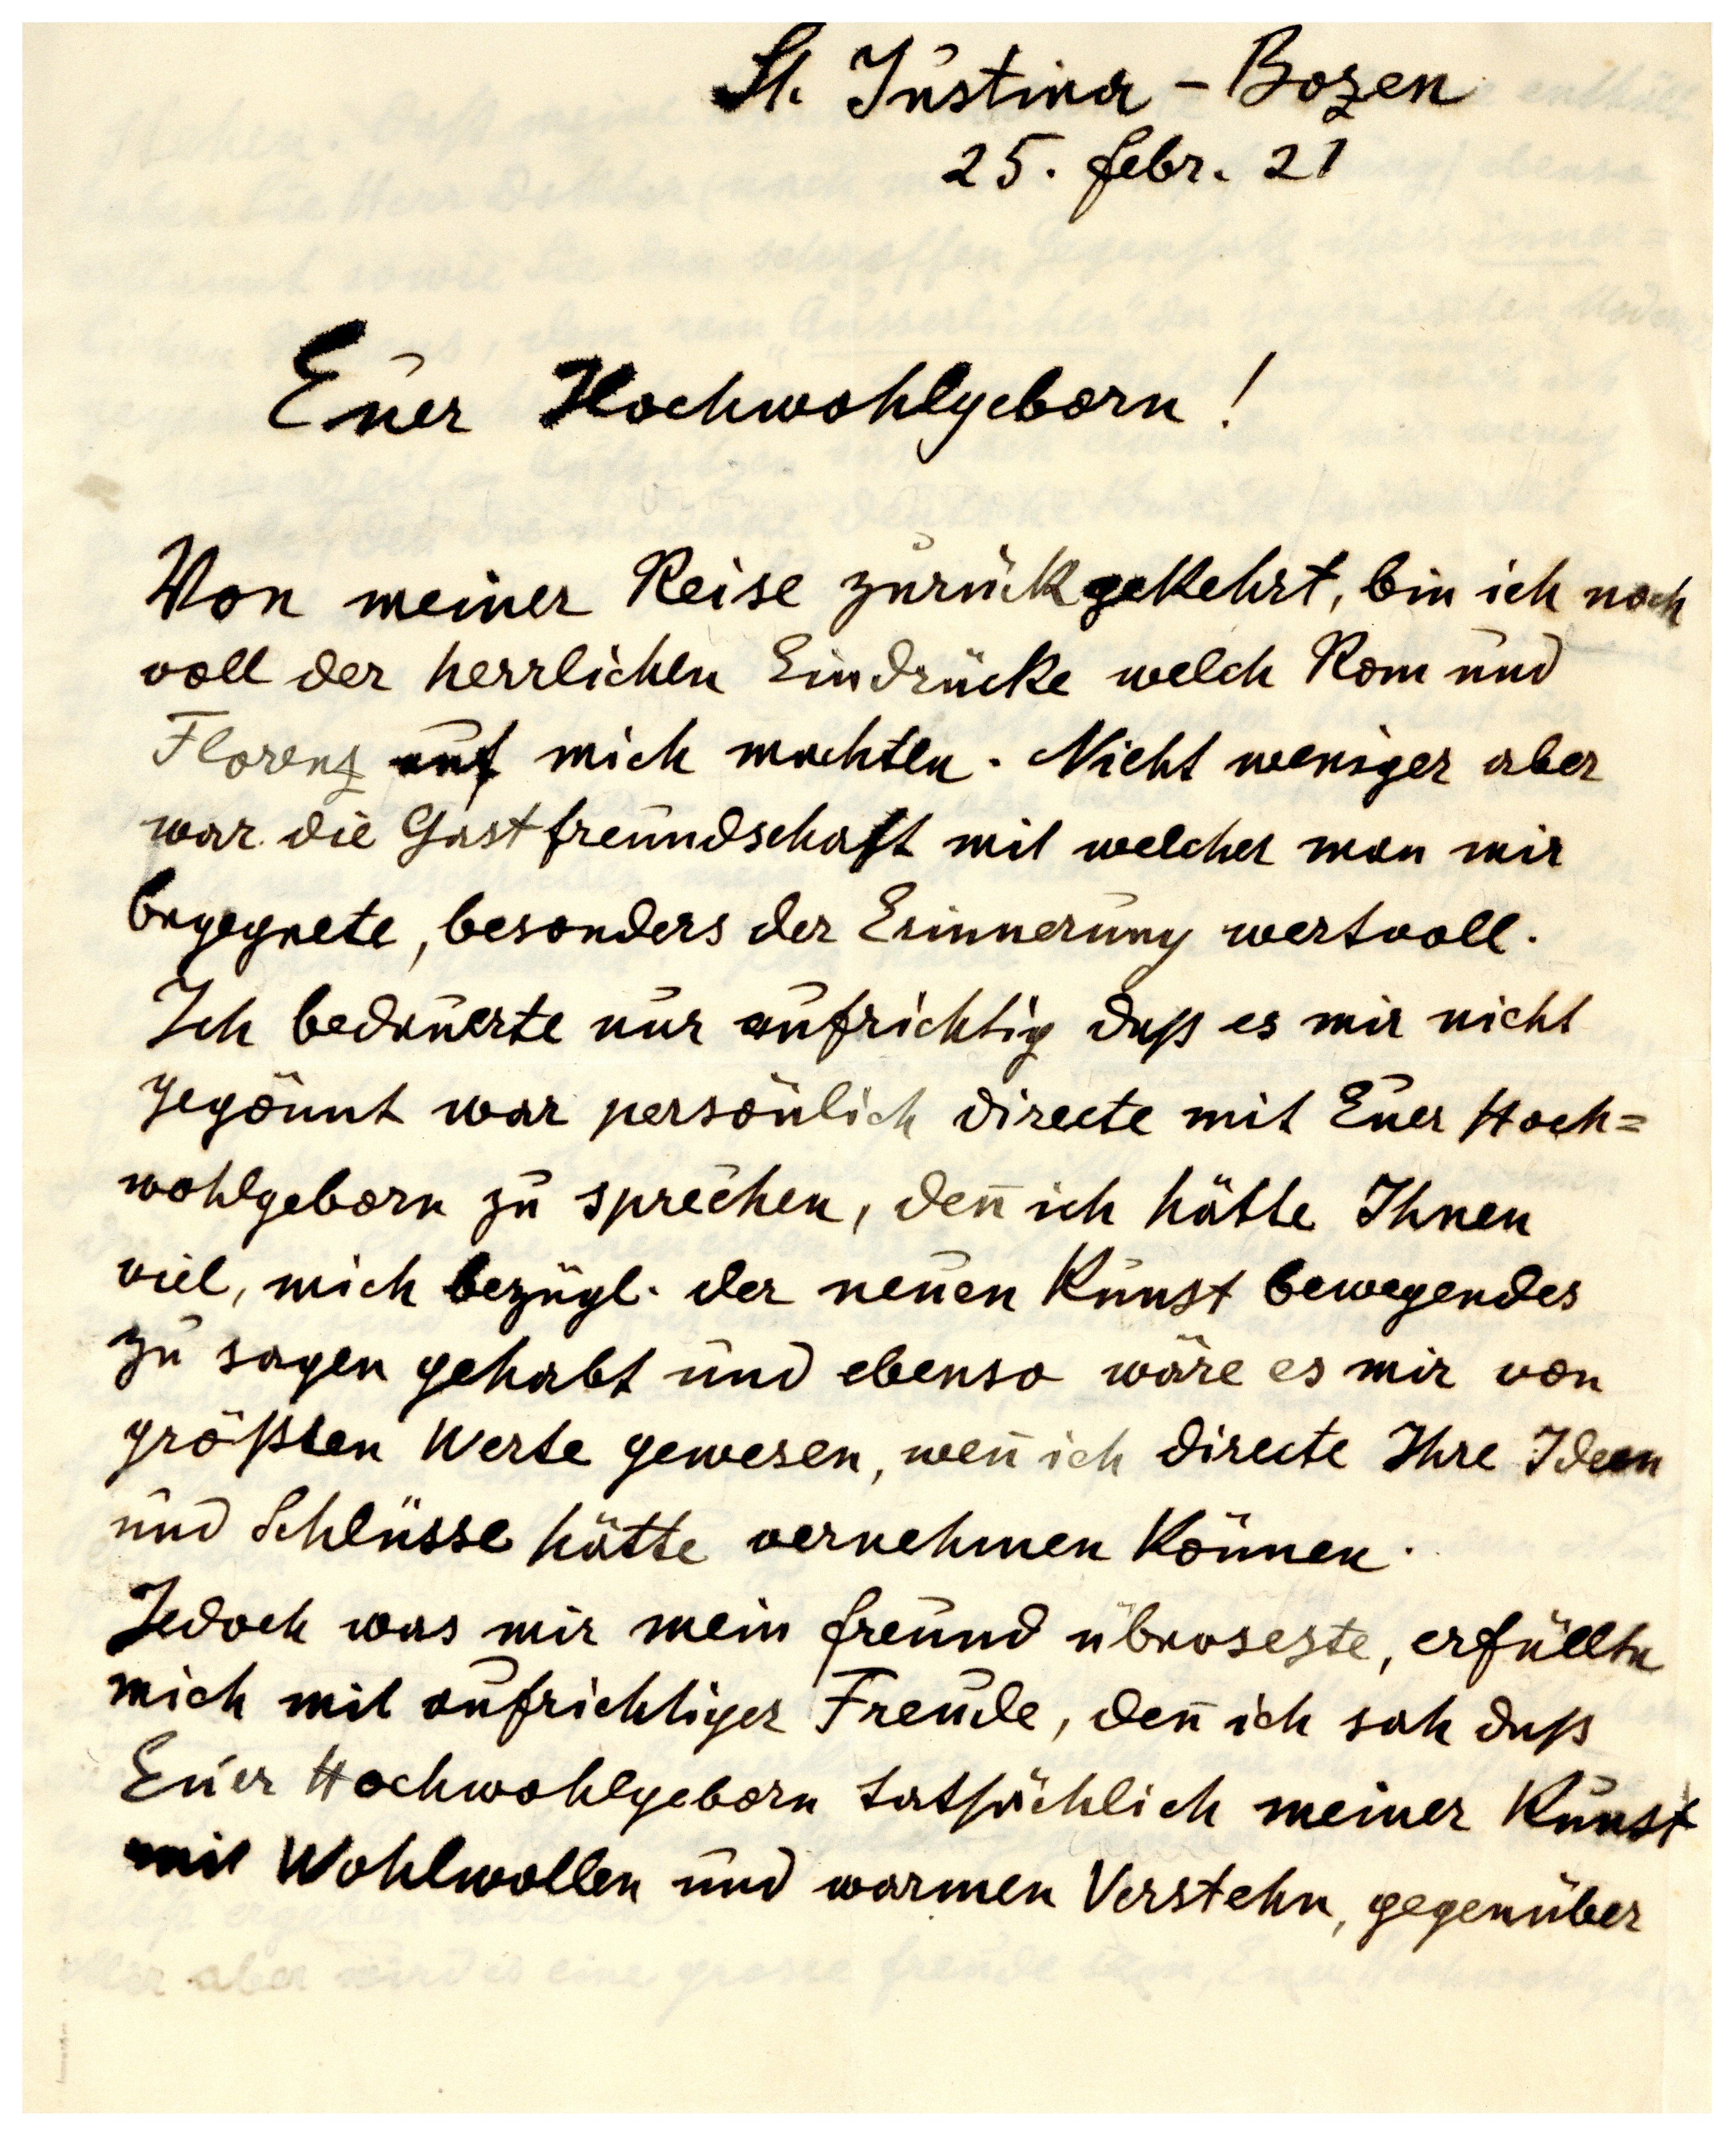 St. Justina - Bozen
25. febr. 21
Euer Hochwohlgeborn!
Von meiner Reise zurückgekehrt, bin ich noch
voll der herrlichen Eindrücke welch Rom und
Florenz auf mich machten. Nicht weniger aber
war die Gastfreundschaft mit welcher man mir
begegnete, besonders der Erinnerung wertvoll.
Ich bedauerte nur aufrichtig daß es mir nicht
gegönnt war persönlich directe mit Euer Hoch=
wohlgeborn zu sprechen, den̄ ich hätte Ihnen
viel, mich bezügl. der neuen Kunst bewegendes
zu sagen gehabt und ebenso wäre es mir von
größten Werte gewesen, wen̄ ich directe Ihre Ideen
und Schlüsse hätte vernehmen können.
Jedoch was mir mein freund, erfüllte
mich mit aufrichtiger Freude, den̄ ich sah daß
Euer Hochwohlgeborn tatsächlich meiner Kunst
mit Wohlwollen und warmen Verstehn, gegenüber